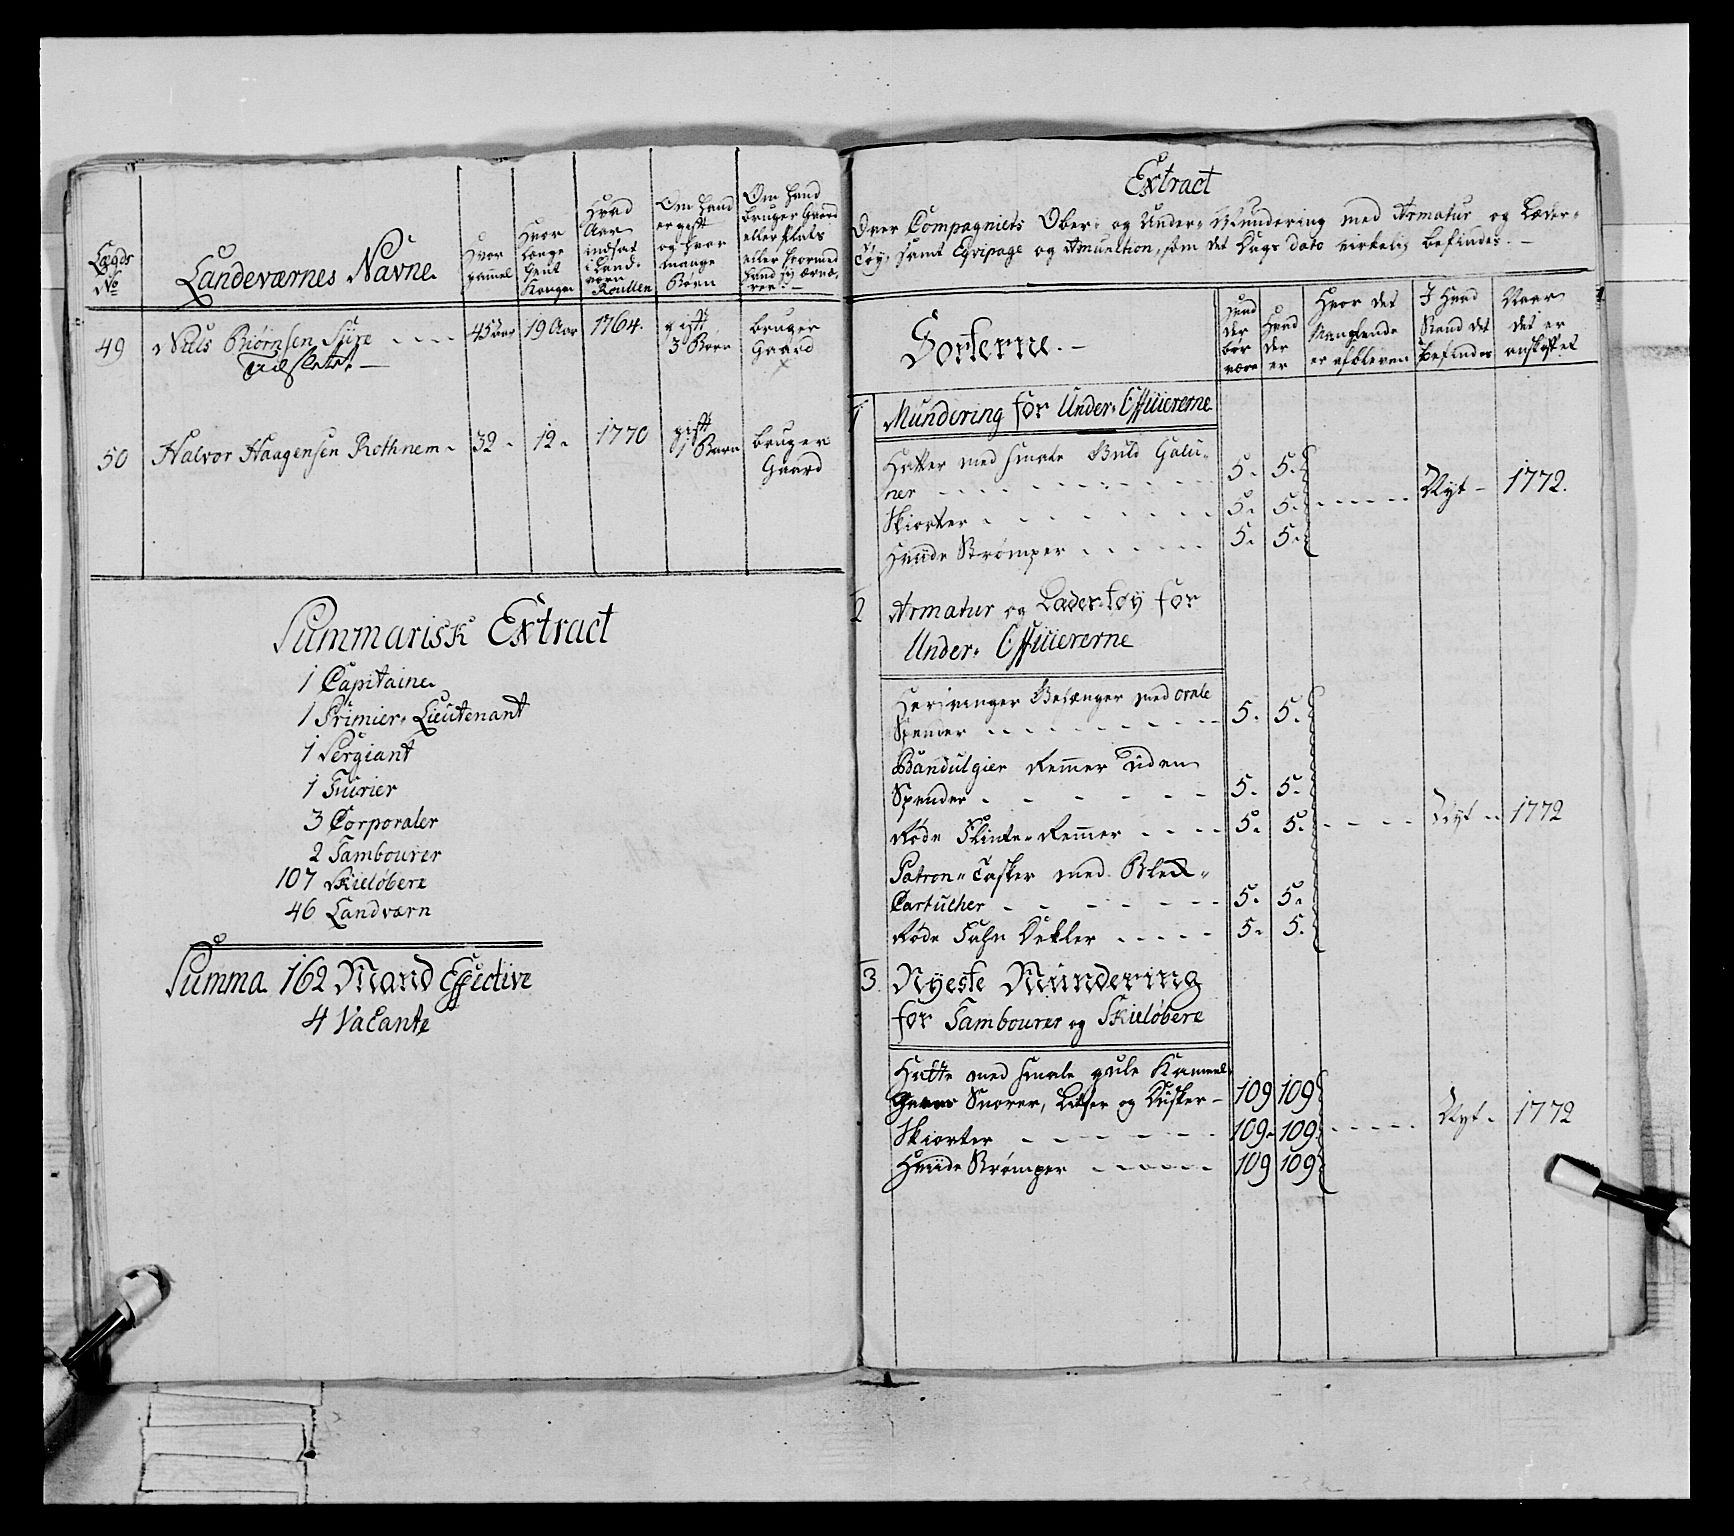 Lægds
No
Landeværnes Navne
Hvor
gammel
Hvor
Længe
tient
Kongen
Hvad
Aar
indsat
i Land-
værn
Roullen
Om Hand
er gift
og hvor
mange
Børn
Om Hand
bruger Gaard
eller Plats
eller hvormed
hand sig ærnæ-
rer
49 Niels Biørnsen Sure 45 aar 19 Aar 1764. gift bruger
Udslettet 3 Børn Gaard
50 Halvor Haagensen Rothnem 32 12 1770 gift bruger
1 Barn Gaard
Summarisk Extract
1 Capitaine
1 Primier-Lieutenant
1 Sergiant
1 Furier
3 Corporaler
2 Tambourer
107 Skieløbere
46 Landværn
Summa 162 Mand Effective
4 Vacante
Extract
Over Compagniets Ober- og Under-Mundering med Armatur og Læder-
tøy, samt Eqvipage og Amunition, som det Dags Dato virkelig befindes.
Sorterne
Hvad
der
bør
være
Hvad
der
er
Hvor det
Manglende
er afbleven
I Hvad
Stand det
befindes
Naar
det er
anskaffet
1 Mundering for Under-Officiererne
Hatter med smale Guld Galu-
ner 5. 5.
Skiorter 5. 5. Nyt 1772.
Hvide Strømper 5. 5.
2 Armatur og Læder-tøy for
Under-Officiererne
Herfvinger Gehænger med ovale
Spender 5. 5.
Bandulgier Remmer uden
Spender 5. 5.
Røde Flinte-Remmer 5. 5. Nyt 1772
Patron-Tasker med Blek-
Cartucher 5. 5.
Røde Fahn Dekler 5. 5.
3. Nyeste Mundering
for Tambourer og Skieløbere
Hatte med smale gule Kameel
Garns Snorer, Litser og Dusker 109 109
Skiorter 109. 109. Nyt 1772
Hvide Strømper 109 109